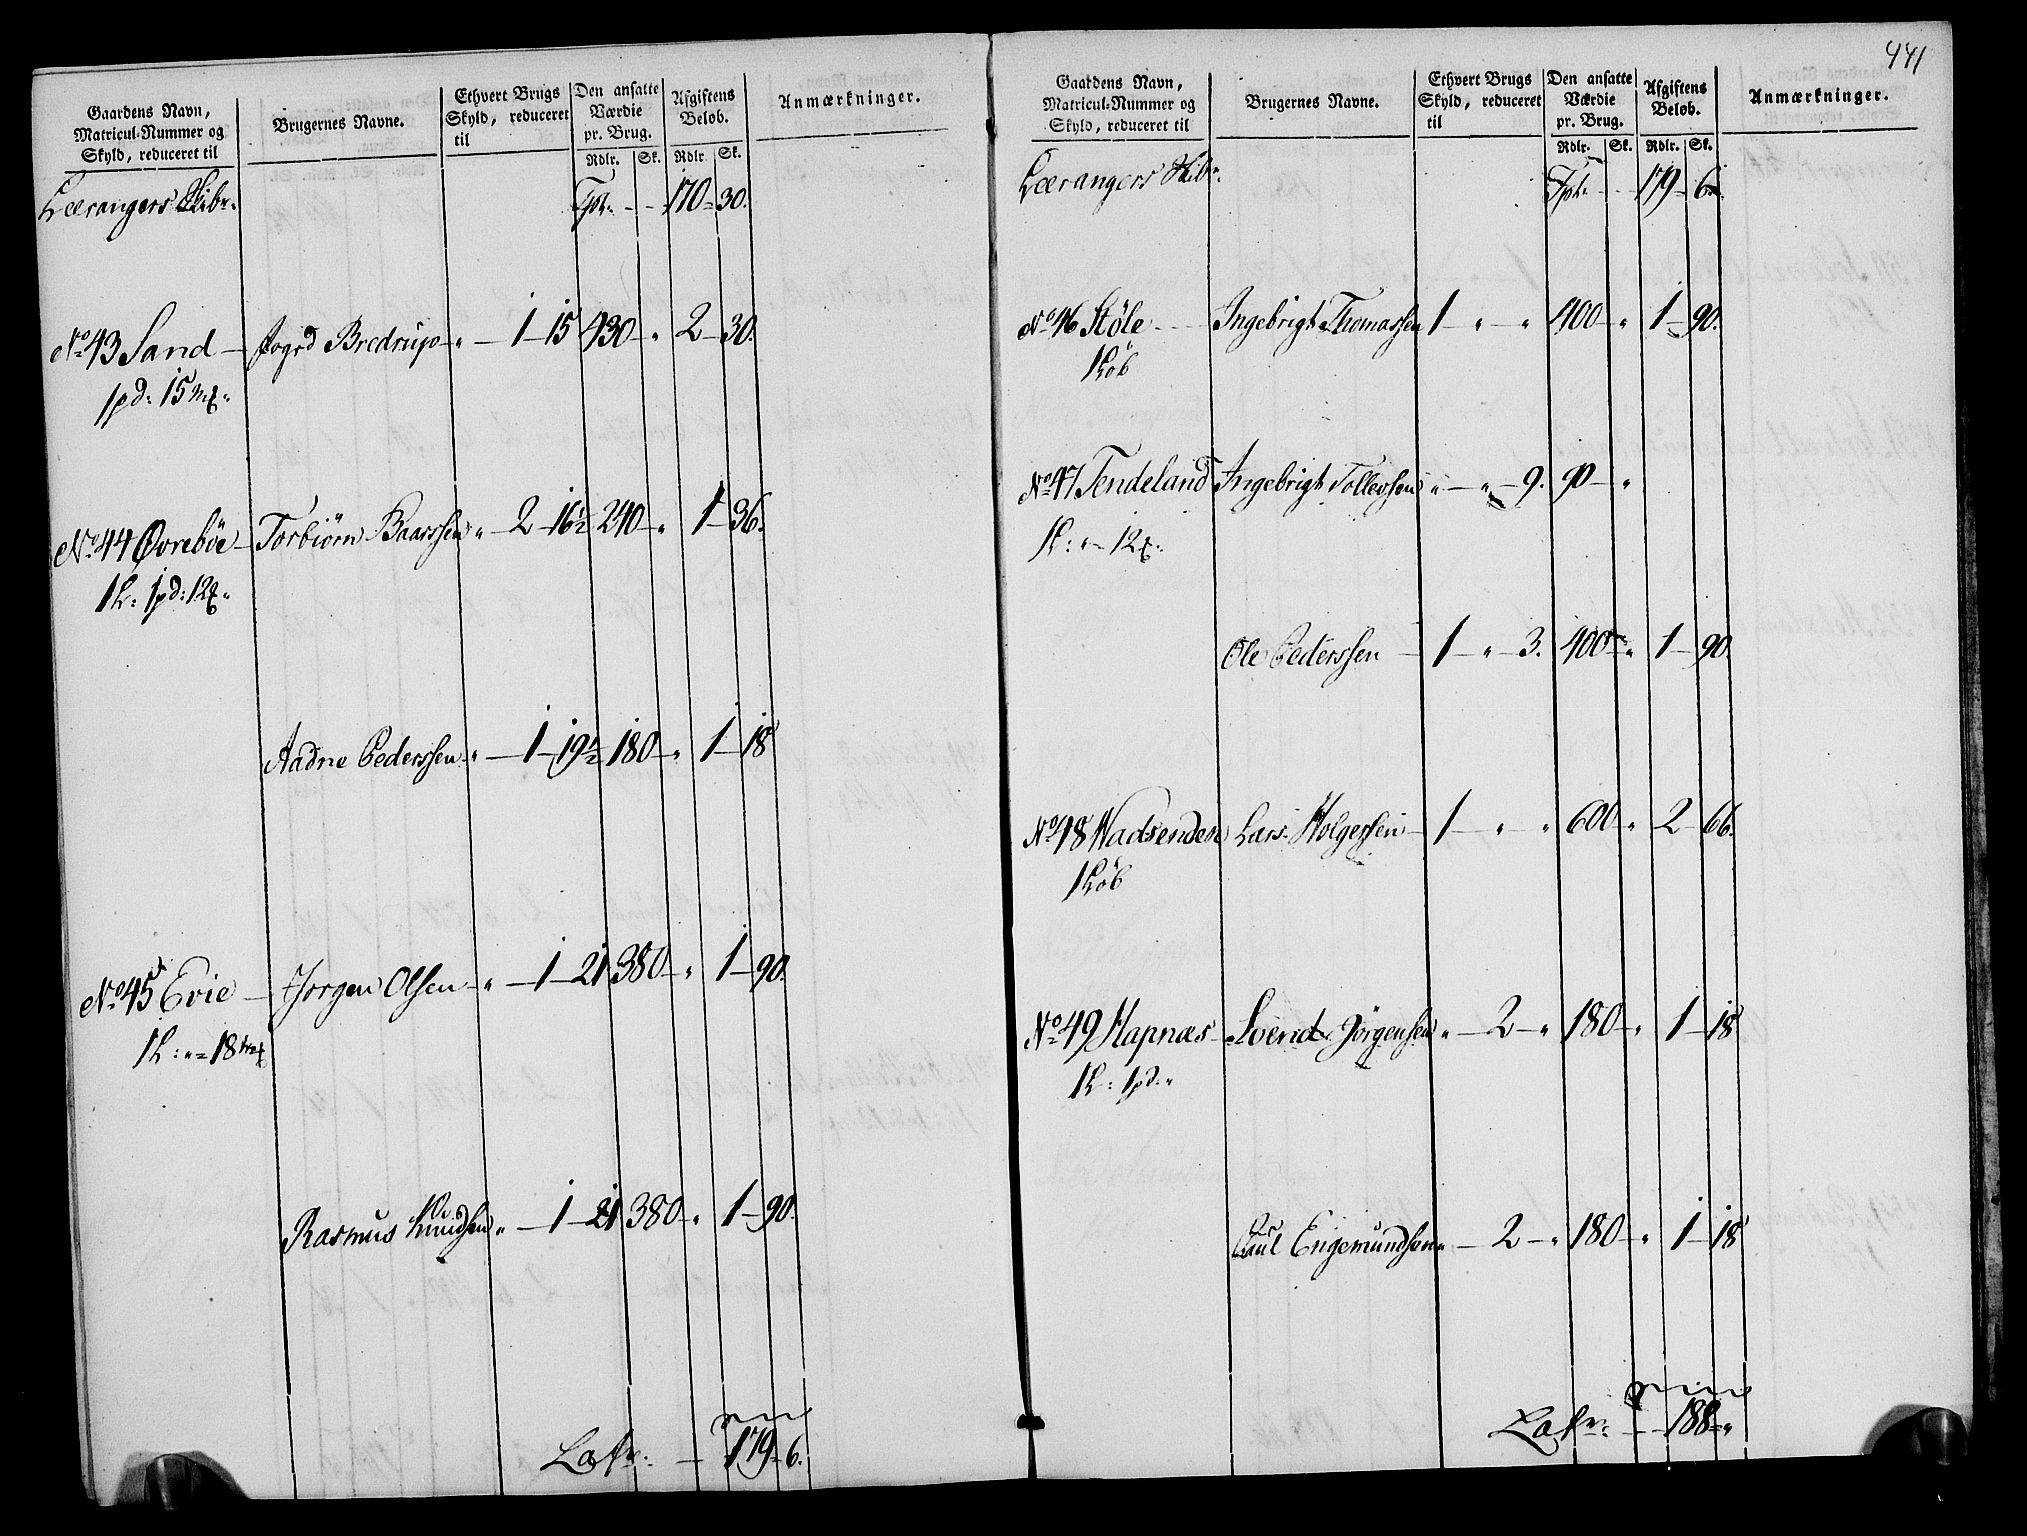 441
Gaardens Navn,
Matricul-Nummer og
Skyld, reduceret til
Brugernes Navne.
Ethvert Brugs
Skyld, reduceret
til
Den ansatte
Værdie
pr. Brug.
Rdlr. Sk.
Afgiftens
Beløb.
Rdlr Sk.
Anmærkninger.
Leerangers Skibr. Tpt. - - 170 - 30.
No 43 Sand - Bredrup - " - 1 - 15 430 - " 2 - 30.
1 pd: 15 mk.
No 44 Øvrebøe - Torbiörn Baarssen " - 2 - 16½ 240 - " 1 - 36.
1 L: 1 pd: 12
Aadne Pederssen - " - 1 - 19½ 180 - " 1 - 18
No 45 Evie - Jörgen Olsen - " - 1 - 21 380 - " 1 - 90.
1 L: " = 18 mk
Rasmus Knudsen " - 1 - 21 380 - " 1 - 90.
Lafr: - 179 - 6.
Gaardens Navn,
Matricul-Nummer og
Skyld, reduceret til
Brugernes Navne.
Ethvert Brugs
Skyld, reduceret
til
Den ansatte
Værdie
pr. Brug.
Rdlr. Sk.
Afgiftens
Beløb.
Rdlr. Sk.
Anmærkninger.
Leerangers Skibr. Tpt. - - 179 - 6.
No 46 Støle - Ingebrigt Thomassen 1 - " - " 400 - " 1 - 90.
1 Løb
No 47 Tendeland Ingebrigt Tollevsen " - " - 9. 90 - "
1 L: " = 12
Ole Pederssen - 1 - " - 3. 400 - " 1 - 90.
No 48 Wadsenden Lars Holgersen - 1 - " - " 600 - " 2 - 66.
1 Løb
No 49 Hapnæs - Svend Jörgensen " - 2 - " 180 - " 1 - 18
1 L: 1 pd: "
Paul Engemundsen " - 2 - " 180 - " 1 - 18
Lafr: - - 188 - "